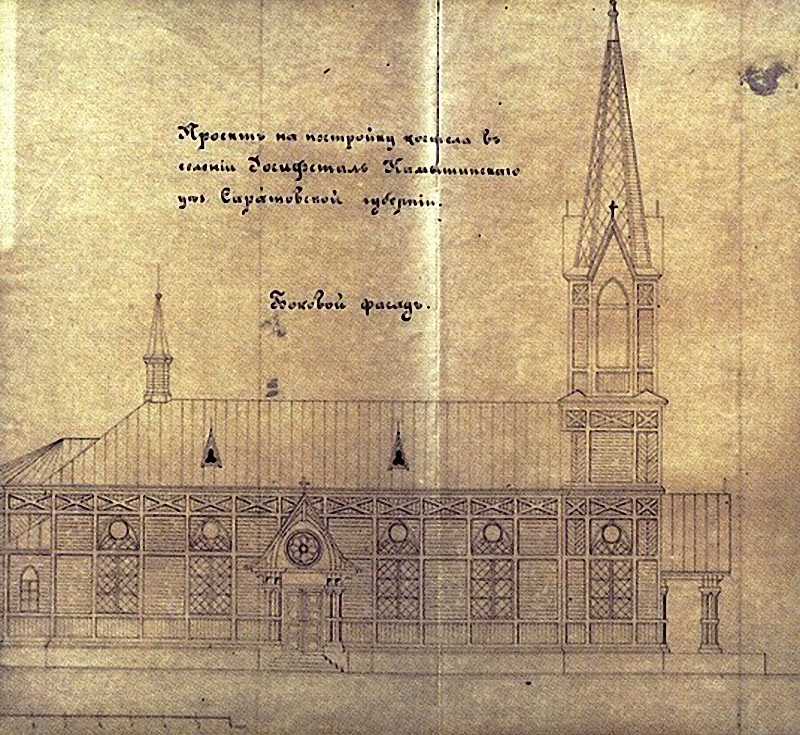 Проектъ на постройку костела въ
селеніи Іосифсталь Камышинскаго
уѣз. Саратовской губерніи.
Боковой фасадъ.